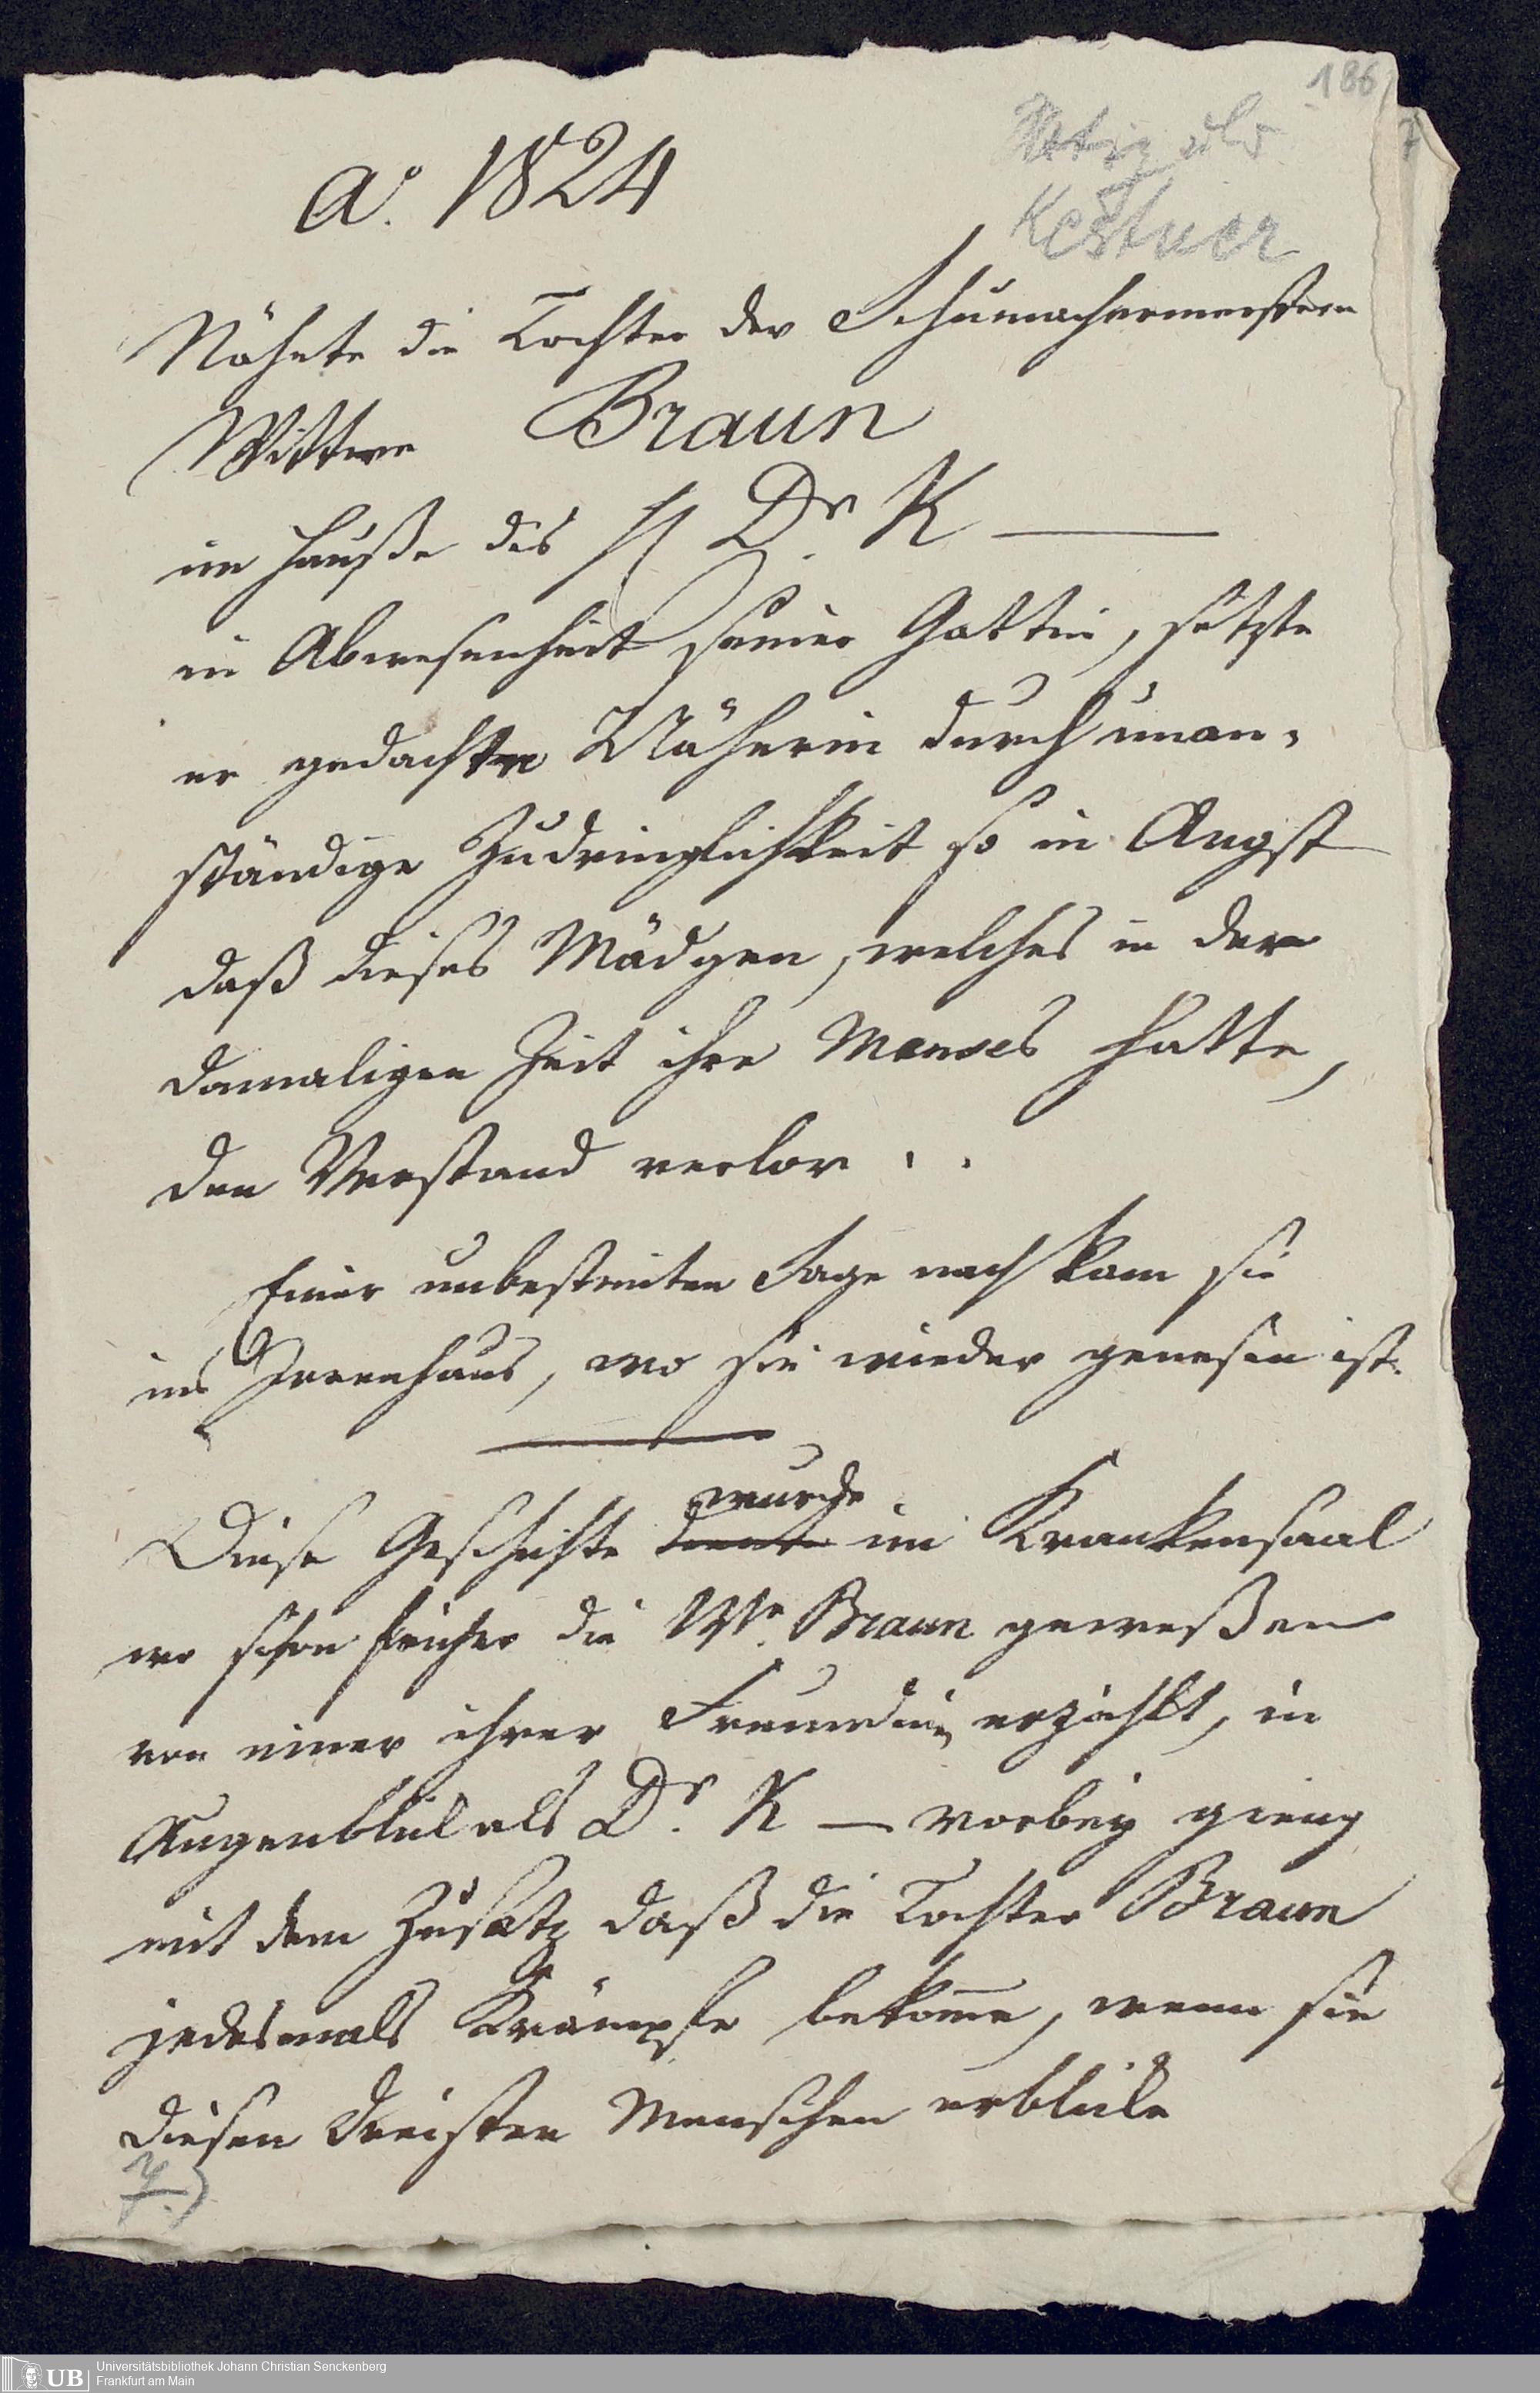 186
Notiz über
Kestner
ao. 1824
Nähete die Tochter der Schumachermeistern
Wittwe Braun
im Hauße des H Dr. K —
in Abwesenheit seiner Gattin, setzte
er gedachte Näherin durch unan-
ständige Zudringlichkeit so in Angst
daß dieses Mädgen, welches in der
damaligen Zeit ihre Menses hatte,
den Verstand verlor . .
Einer unbestimten Sage nach kam sie
ins Irrenhaus, wo sie wieder genesen ist.
wurde
Diese Geschichte im Krankensaal
wo schon früher die We. Braun geweßen
von einer ihrer Freundin erzählt, im
Augenblick als Dr. K — vorbey gieng
mit dem Zusatz daß die Tochter Braun
jedesmals Krämpfe bekome, wenn sie
diesen dreisten Menschen erblicke
UB
Universitätsbibliothek Johann Christian Senckenberg
Frankfurt am Main